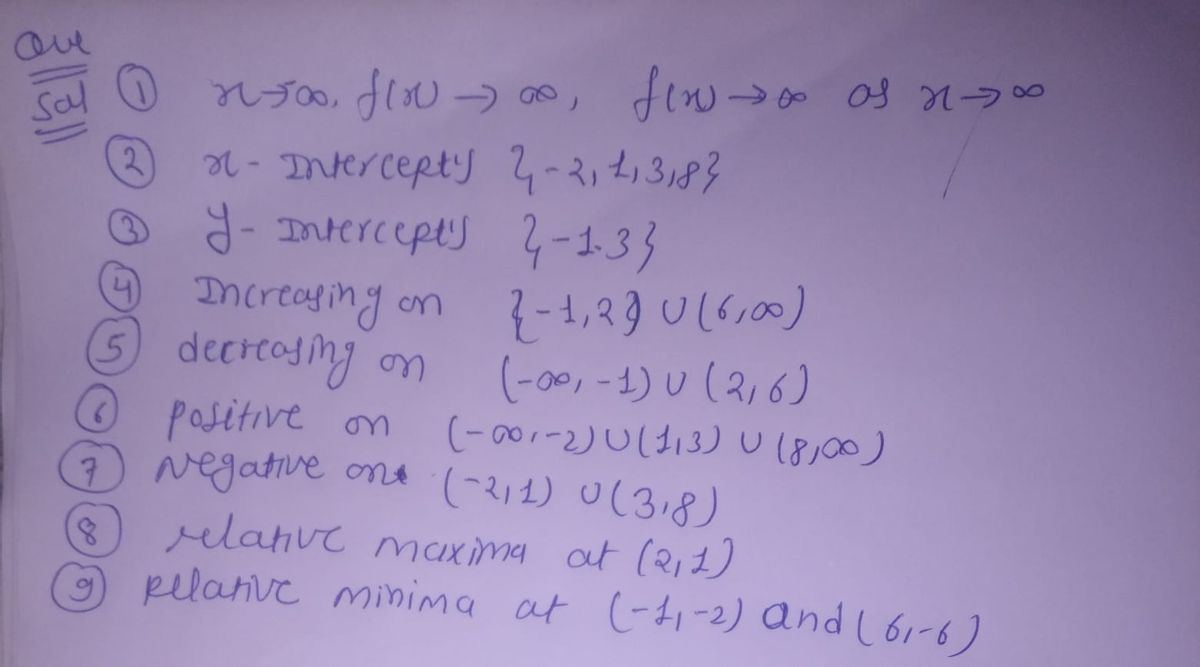 Que
Sol ① x→∞, f(x) → ∞, f(x) → ∞ as x → ∞
② x- Intercepts {-2, 1, 3, 8}
③ y- Intercepts {-1.3}
④ Increasing on {-1, 2} ∪ (6, ∞)
⑤ decreasing on (-∞, -1) ∪ (2, 6)
⑥ positive on (-∞, -2) ∪ (1, 3) ∪ (8, ∞)
⑦ Negative on (-2, 1) ∪ (3, 8)
⑧ relative maxima at (2, 1)
⑨ Relative minima at (-1, -2) and (6, -6)